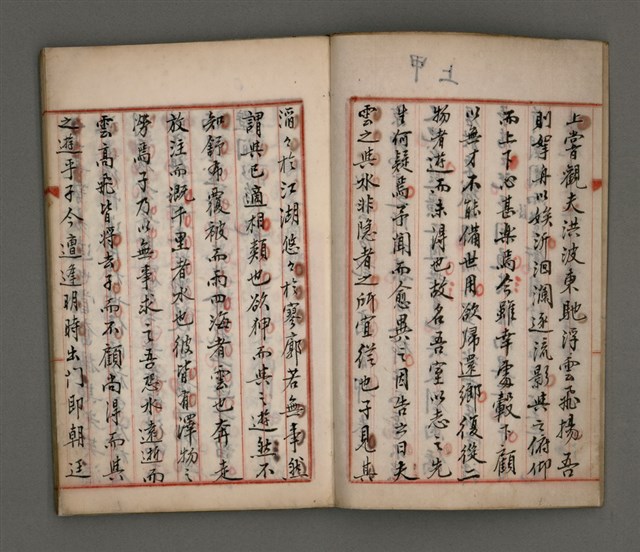 上 甲
上嘗觀夫洪波東馳浮雲飛揚吾
則拏舟以娭沂洄瀾逐流影與之俯仰
而上下心甚樂焉今雖幸處轂下顧
以無才不能備世用欲歸還鄉復從二
物者遊而未得也故名吾室以志之先
生何疑焉予聞而愈異之因告之曰夫
雲之與水非隱者之所宜從也子見其
滔々於江湖悠々於寥廓若無事然
謂與已適相類也欲狎而與之遊然不
知舒布覆被而雨四海者雲也奔走
放注而溉千里者水也彼皆有澤物之
勞焉子乃以無事求之吾恐水遠逝而
雲高飛皆將去子而不顧尚得而與
之遊乎子今遭逢明時出門即朝廷